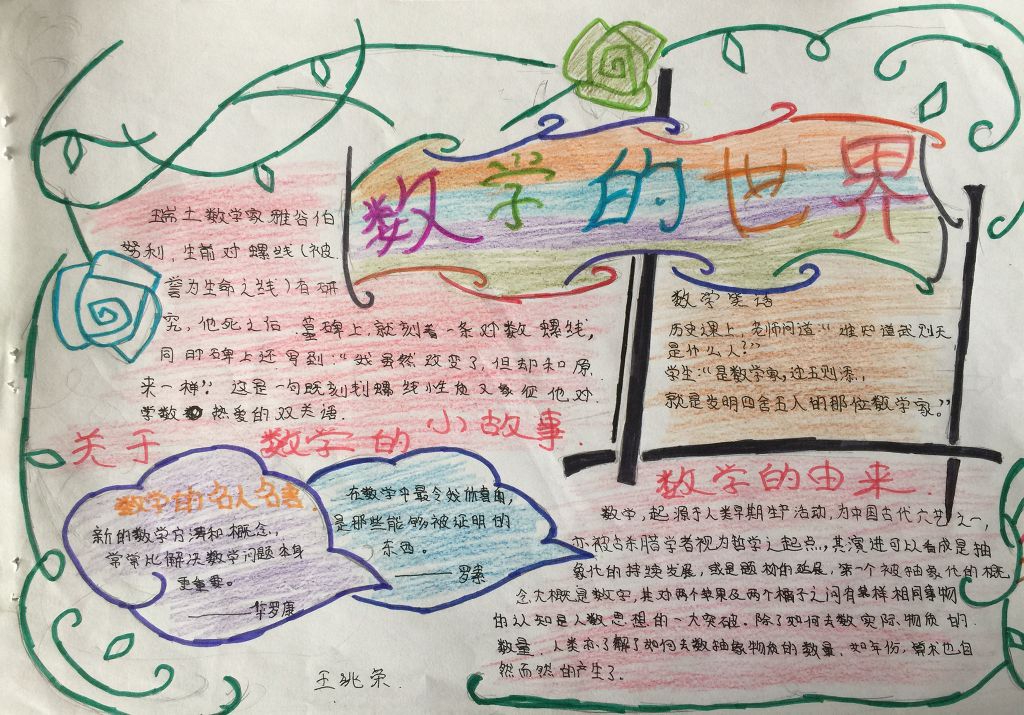 数学的世界
瑞士数学家雅谷伯
努利，生前对螺线（被
誉为生命之线）有研
究，他死之后，墓碑上，就刻着一条对数螺线，
同时碑上还写到：“我虽然改变了，但却和原
来一样”。这是一句既刻划螺线性质又象征他对
学数热爱的双关语.
关于数学的小故事.
数学笑话
历史课上，老师问道：“谁知道武则天
是什么人？”
学生：“是数学家，过五则添，
就是发明四舍五入的那位数学家。”
数学的名人名言.
新的数学方法和概念，
常常比解决数学问题本身
更重要。
——华罗康
在数学中最令我欣喜的，
是那些能够被证明的
东西。
——罗素
数学的由来.
数学，起源于人类早期生产活动，为中国古代六艺之一，
亦被古希腊学者视为哲学之起点，其演进可以看成是抽
象化的持续发展，或是题材的延展，第一个被抽象化的概
念大概是数字，其对两个苹果及两个橘子之间有某样相同事物
的认知是人数思想的一大突破。除了如何去数实际物质的
数量，人类亦了解了如何去数抽象物质的数量，如年份，算术也自
然而然的产生了。
王兆荣.